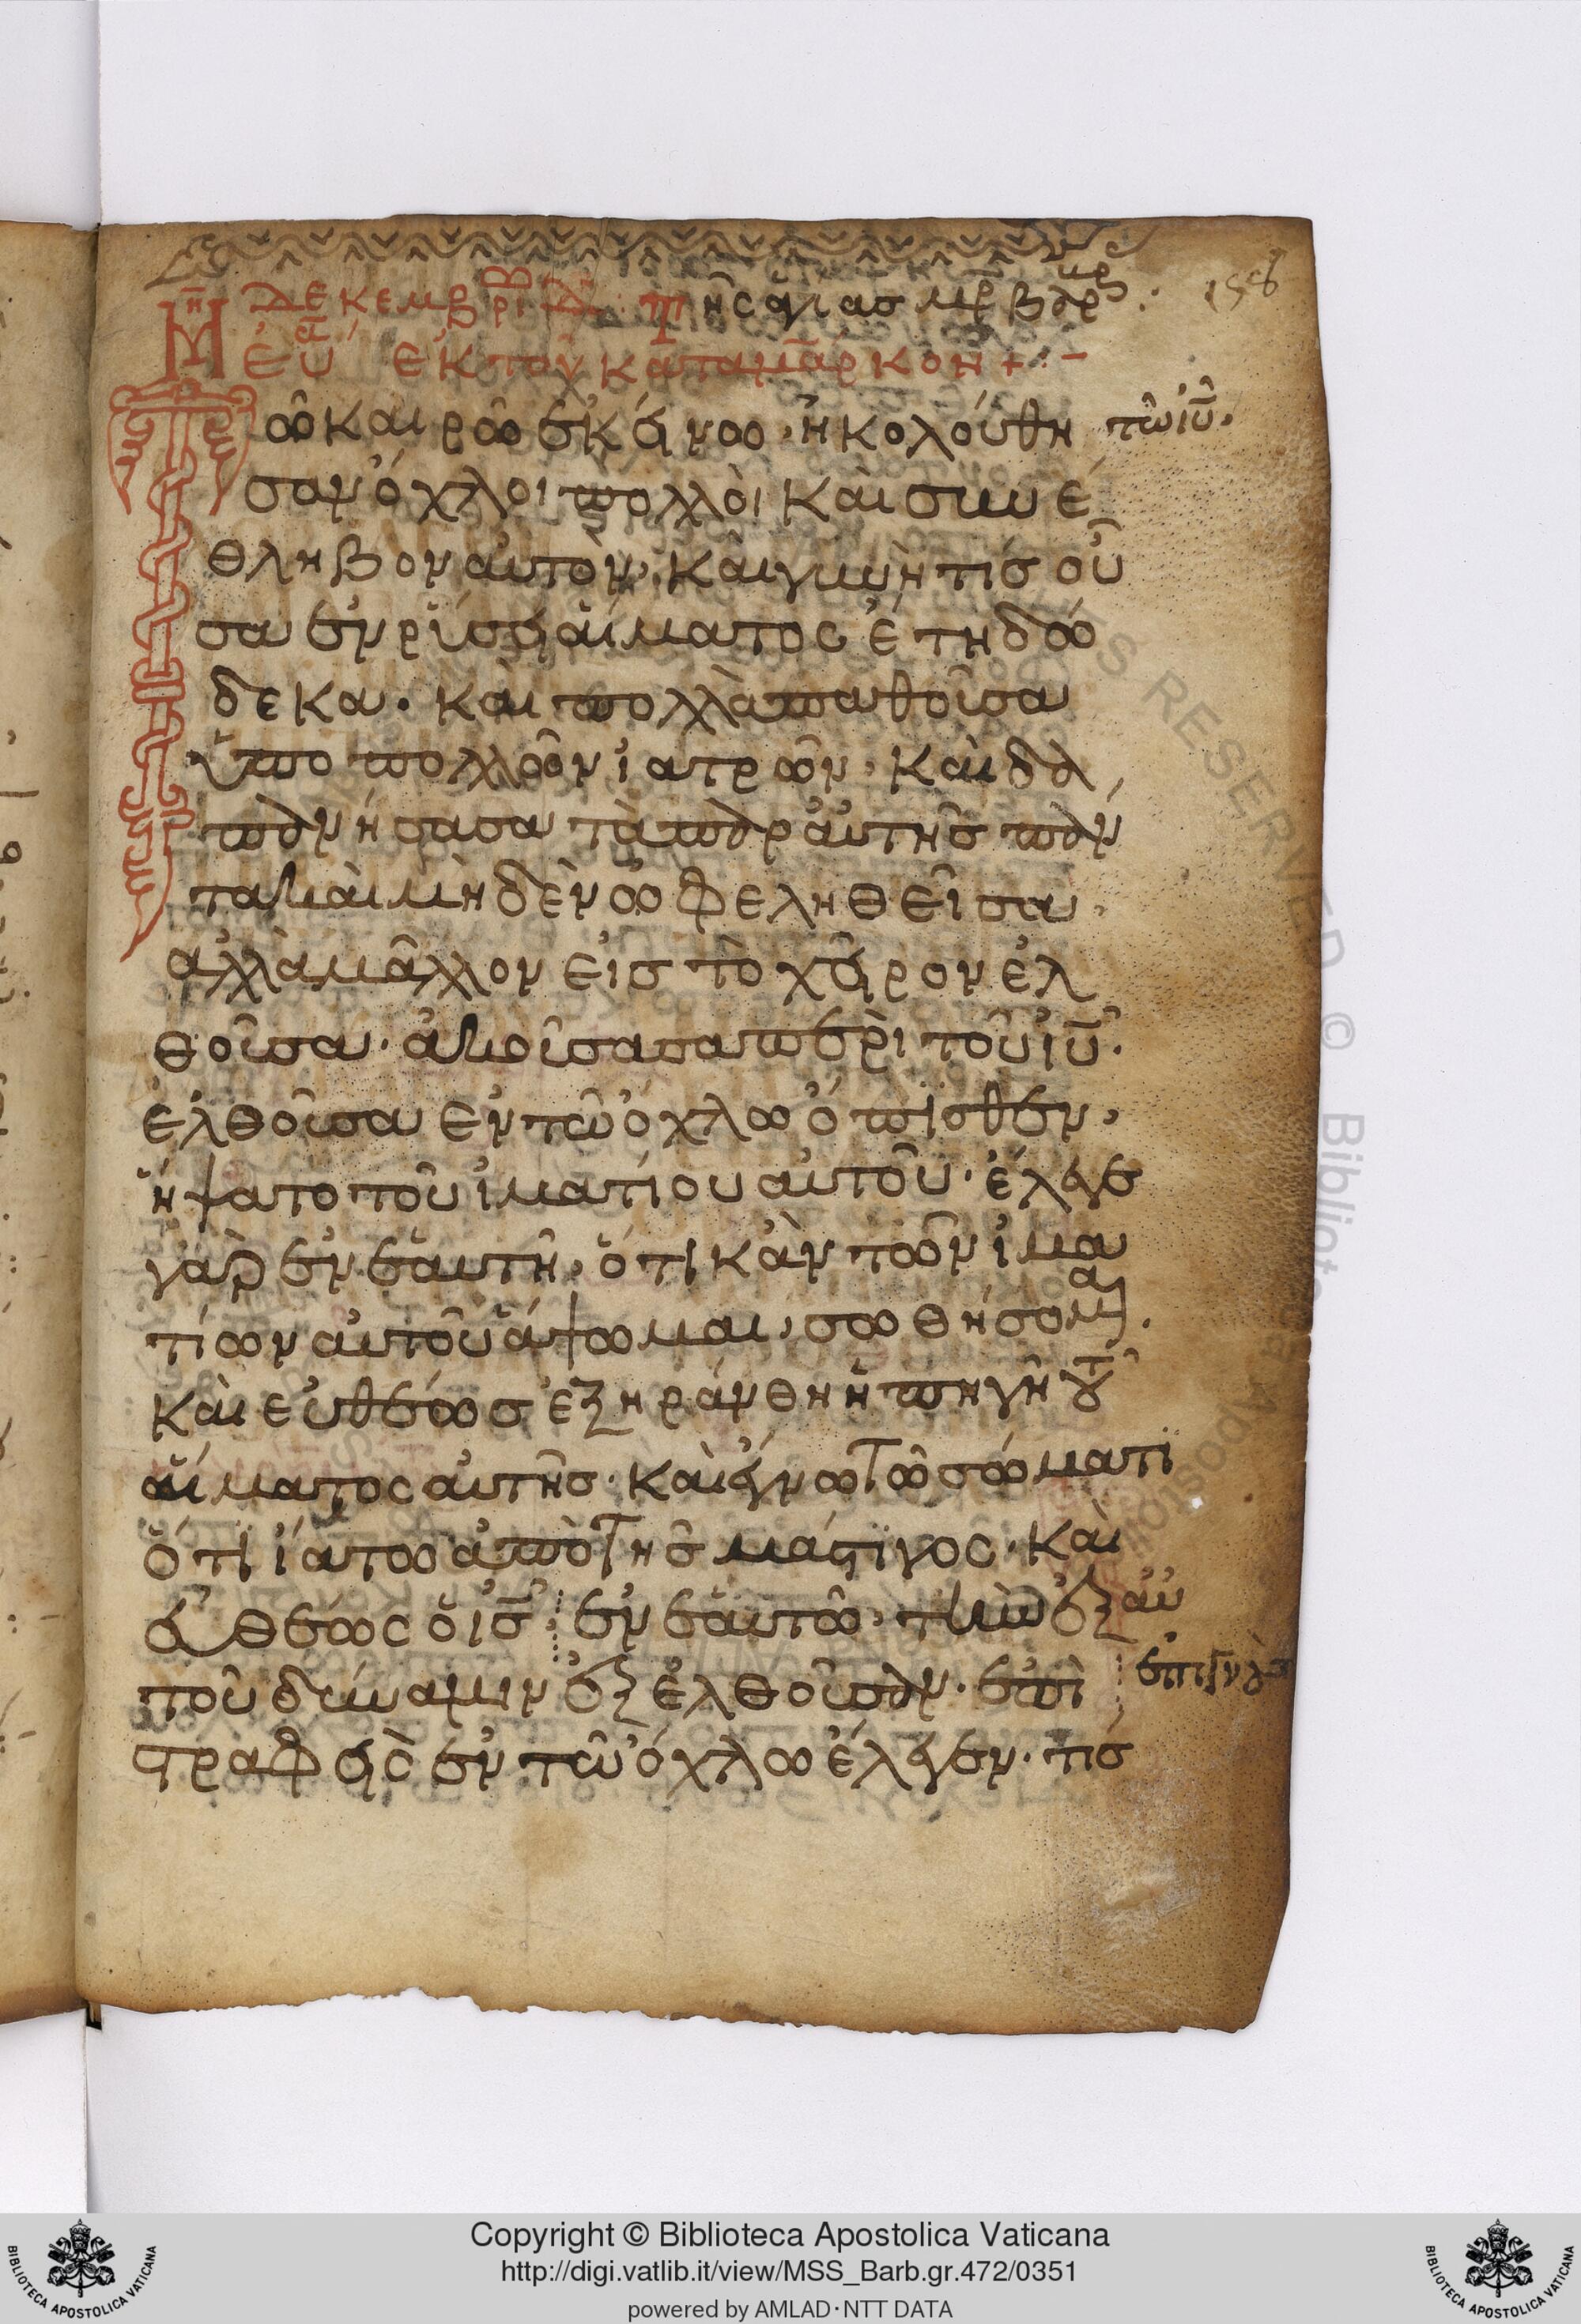 Μη Δεκεμβρι Δ Της αγιας μρ βαρβαρ 158
ευα εκ του κατα μαρκον + · –
Τῶ καιρῶ ἐκείνω · ἠκολούθη τῶ ἰῦ ·
σαν ὄχλοι πολλὸι κὰι συν έ
θληβον αυτὸν · κὰι γυνὴ τίσ οὖ
σα ἐν ρύσει ἁίματος ἔτη δώ
δεκα · κὰι πολλὰ παθοῦσα
ὑπο πολλῶν ἰατρῶν · κὰι δα
πανήσασα τὰ παρ ἀυτῆς πάν
τα κὰι μὴδὲν ὠφεληθεῖσα ·
αλλὰ μᾶλλον εἰσ τὸ χεῖρον ἐλ
θοῦσα · ἀκούσασα περὶ τοῦ ἰῦ ·
ἐλθοῦσα ἐν τῶ ὄχλω ὄπισθεν ·
ἥψατο τοῦ ἱματίου αὐτοῦ · ἔλεγε
γὰρ ἐν ἑαυτῆ · ὅτι κἂν τῶν ἱμα
τίων αὐτοῦ ἅψωμαι · σωθήσομαι ·
κὰι εὐθέως ἐξηράνθη ἡ πηγὴ τοῦ
ἁίματος αὐτῆς · κὰι ἔγνω τῶ σώματι
ὅτι ἴαται ἀπὸ τῆς μάστιγος · κὰι
εὐθέως ὁ ἰς ἐν ἑαυτῶ · τὴν ἐξ αὐ
τοῦ δύναμιν ἐξελθοῦσαν · ἐπι ἐπιγνοὺσ
στραφεὶς ἐν τῶ ὄχλω ἔλεγεν · τίς
Copyright © Biblioteca Apostolica Vaticana
http://digi.vatlib.it/view/MSS_Barb.gr.472/0351
powered by AMLAD·NTT DATA
BIBLIOTECA APOSTOLICA VATICANA
BIBLIOTECA APOSTOLICA VATICANA